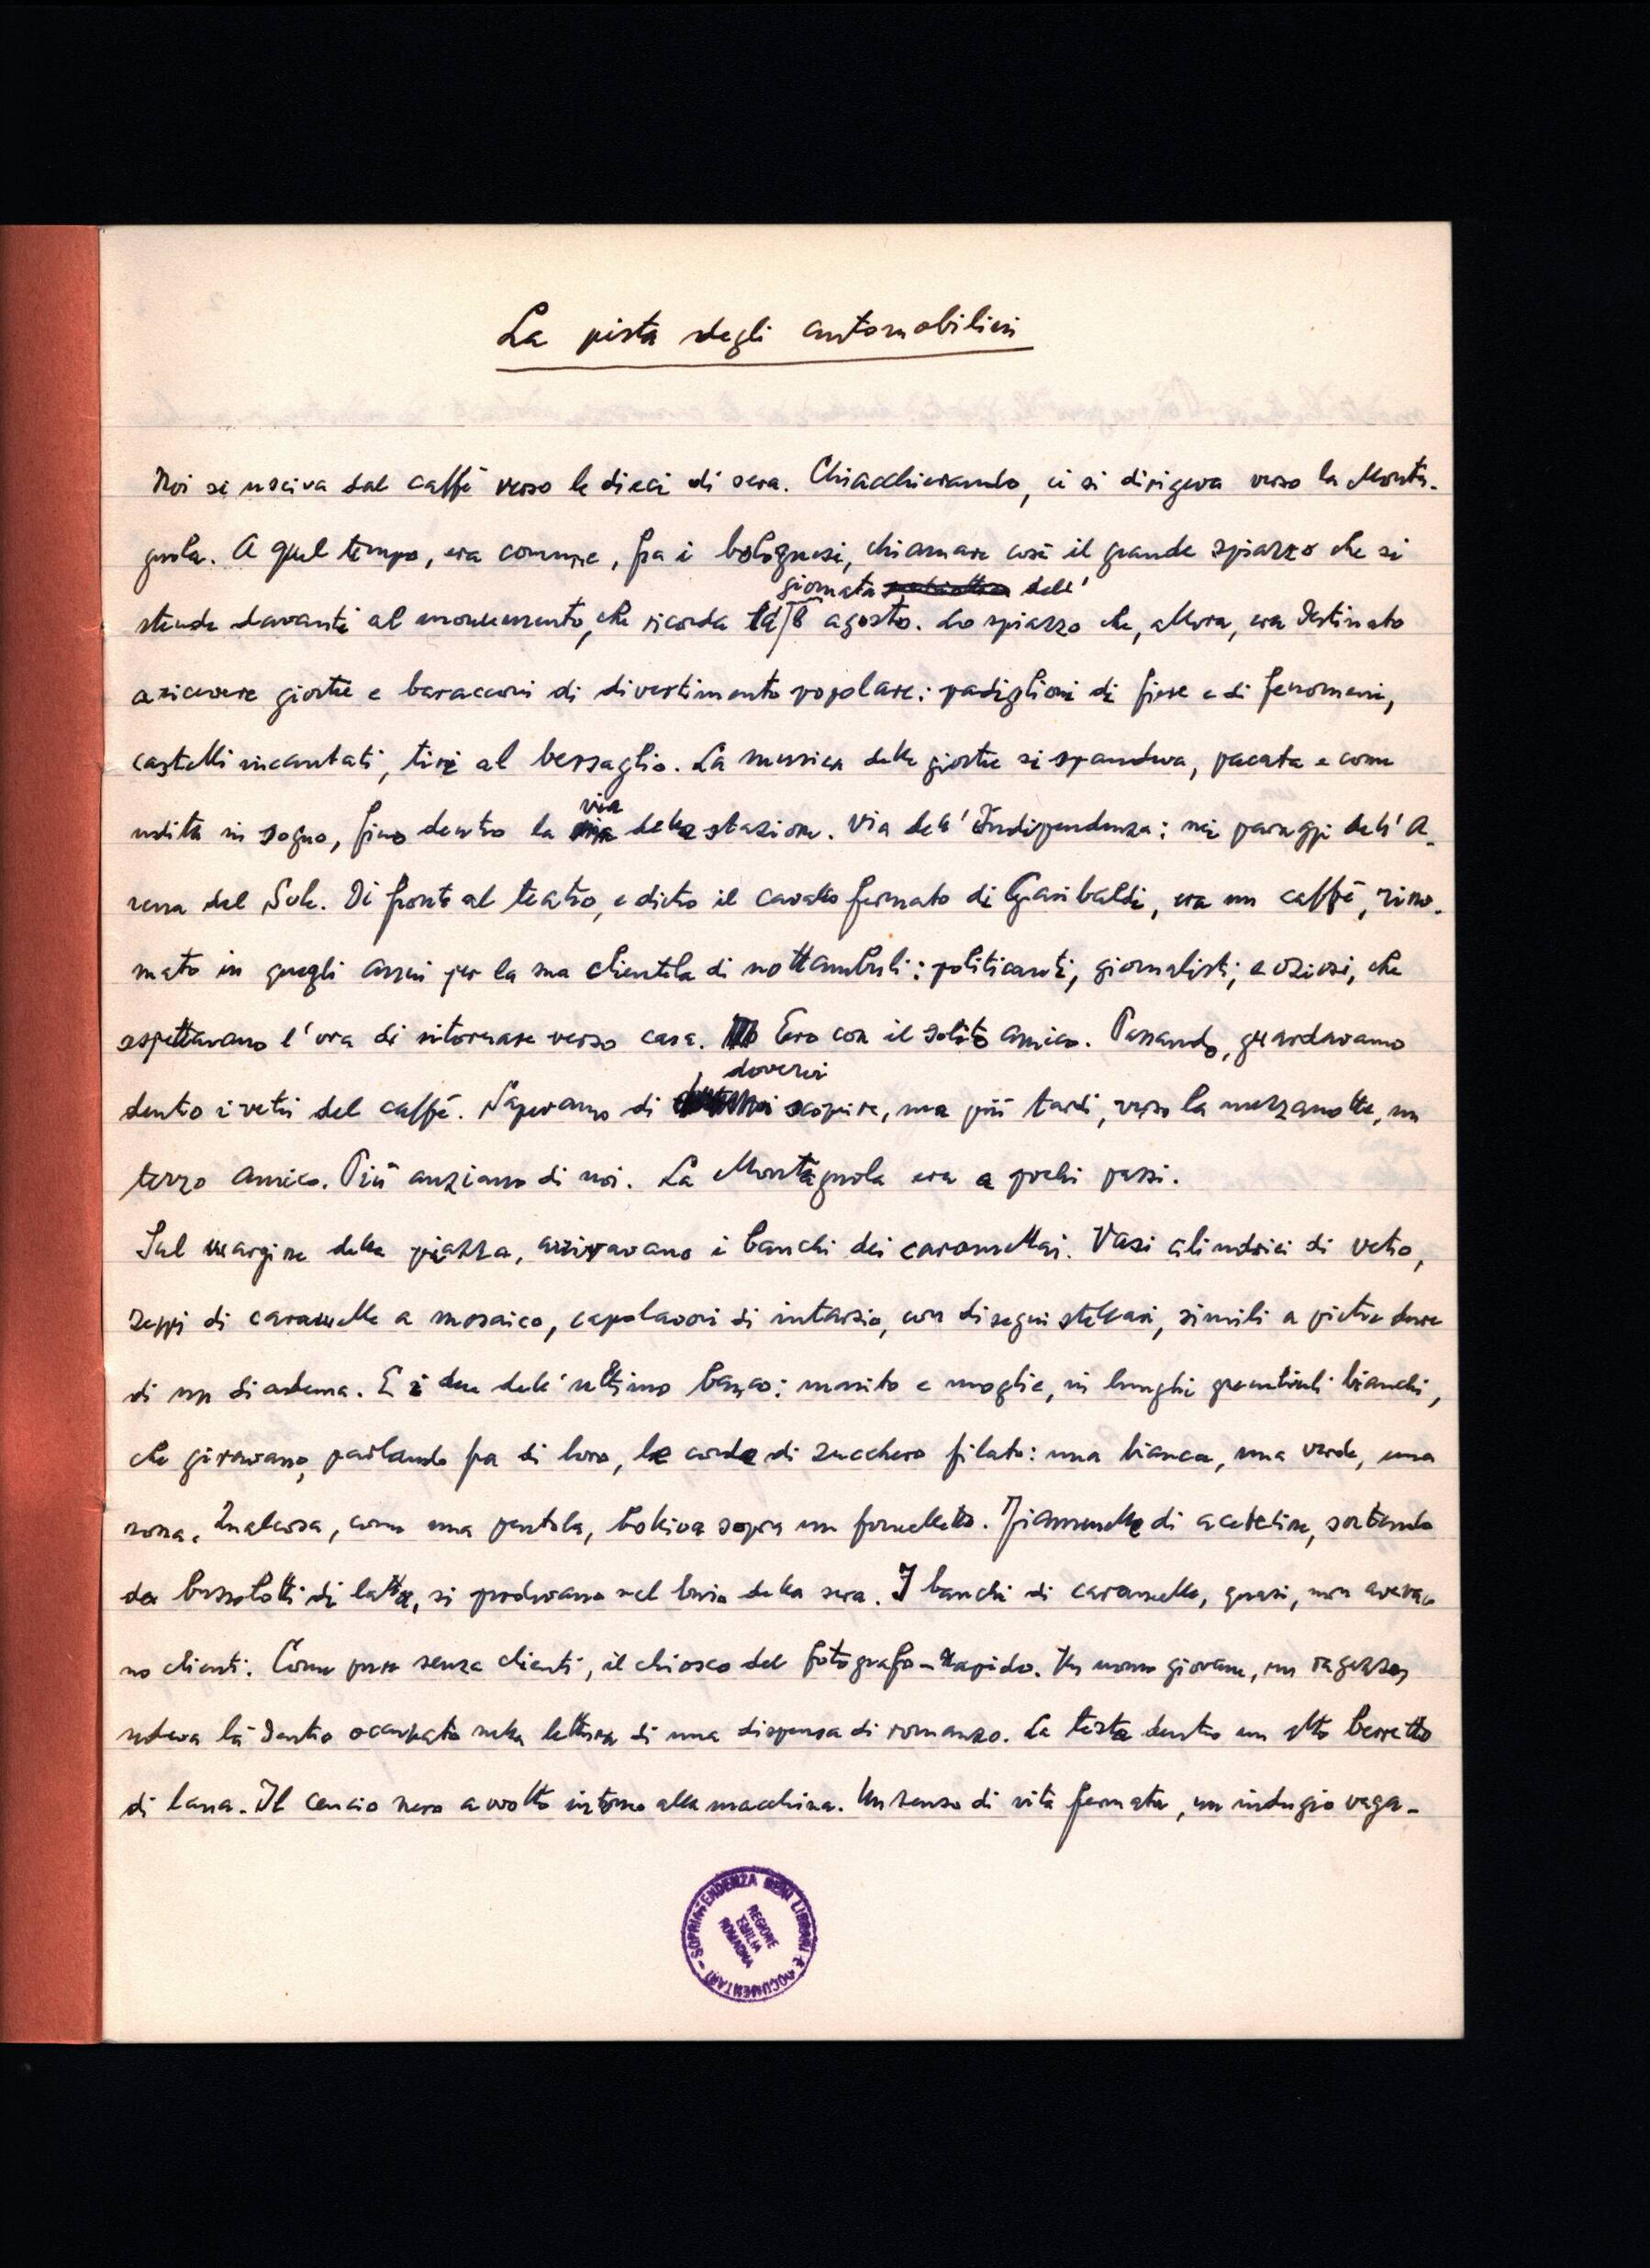 La pista degli automobilini
Noi si usciva dal caffè verso le dieci di sera. Chiacchierando, ci si dirigeva verso la Monta-
gnola. A quel tempo, era comune, fra i bolognesi, chiamare così il grande spiazzo che si
giornata dell'
stende davanti al monumento, che ricorda la 8 agosto. Lo spiazzo che, allora, era destinato
a ricevere giostre e baracconi di divertimento popolare: padiglioni di fiere e di fenomeni,
castelli incantati, tiri al bersaglio. La musica delle giostre si spandeva, pacata e come
via
udita in sogno, fino dentro la della stazione. Via dell'Indipendenza: nei paraggi dell'A-
rena del Sole. Di fronte al teatro, e dietro il cavallo fermato di Garibaldi, era un caffè, rino-
mato in quegli anni per la sua clientela di nottambuli: politicanti, giornalisti, e oziosi, che
aspettavano l'ora di ritornare verso casa. Ero con il solito amico. Passando, guardavamo
doverci
dentro i vetri del caffè. Sapevamo di scoprire, ma più tardi, verso la mezzanotte, un
terzo amico. Più anziano di noi. La Montagnola era a pochi passi.
Sul margine della piazza, arrivavano i banchi dei caramellai. Vasi cilindrici di vetro,
zeppi di caramelle a mosaico, capolavori di intarsio, con disegni stellari, simili a pietre dure
di un diadema. E i due dell'ultimo banco: marito e moglie, in lunghi grembiuli bianchi,
che giravano, parlando fra di loro, le corde di zucchero filato: una bianca, una verde, una
rossa. Qualcosa, come una pentola, bolliva sopra un fornelletto. Fiammelle di acetilene, sortendo
da bussolotti di latta, si perdevano nel buio della sera. I banchi di caramelle, quasi, non aveva-
no clienti. Come pure senza clienti, il chiosco del fotografo-rapido. Un uomo giovane, un ragazzo,
sedeva là dentro occupato nella lettura di una dispensa di romanzo. La testa dentro un alto berretto
di lana. Il cencio nero avvolto intorno alla macchina. Un senso di vita fermata, un indugio vaga-
SOPRINTENDENZA BENI LIBRARI E DOCUMENTARI -
REGIONE
EMILIA
ROMAGNA